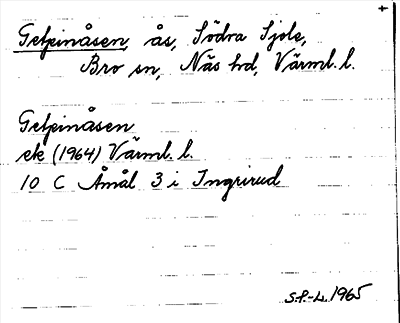 Getpinåsen, ås, Södra Sjole,
Bro sn, Näs hd, Värml. l.
Getpinåsen
ek (1964) Värml. l.
10 C Åmål 3 i Ingrirud
S.P.-L. 1965